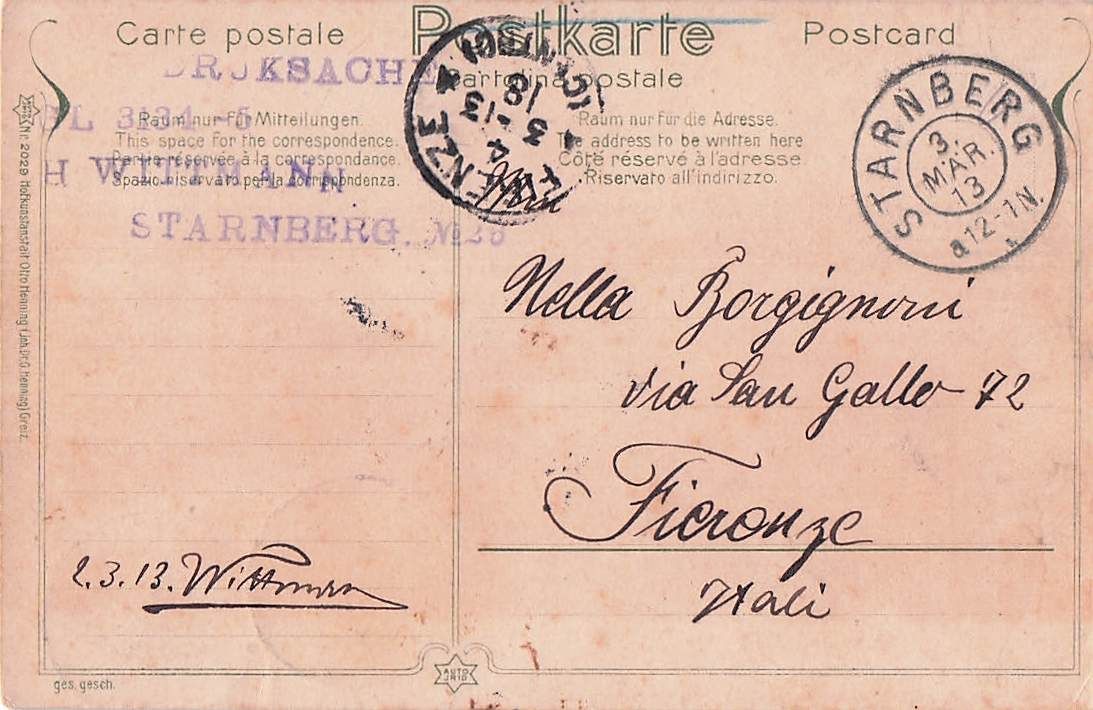 Carte postale Postkarte Postcard
Cartolina postale
DRUKSACHE
3134-5
WITTMANN
STARNBERG. №25
Raum nur für Mitteilungen.
This space for the correspondence.
Partie réservée à la correspondance.
Spazio riservato per la corrispondenza.
Raum nur für die Adresse.
The address to be written here
Côté réservé à l'adresse.
Riservato all'indirizzo.
18
4 3 -13
STARNBERG
3.
MÄR.
13
a 12-1 N.
Nella Borgignoni
via San Gallo 72
Fieronze
Itali
2.3.13. Wittmann
Nr. 2029 Hofkunstanstalt Otto Henning (Inh. Dr. G. Henning) Greiz.
AUTO
ges. gesch.